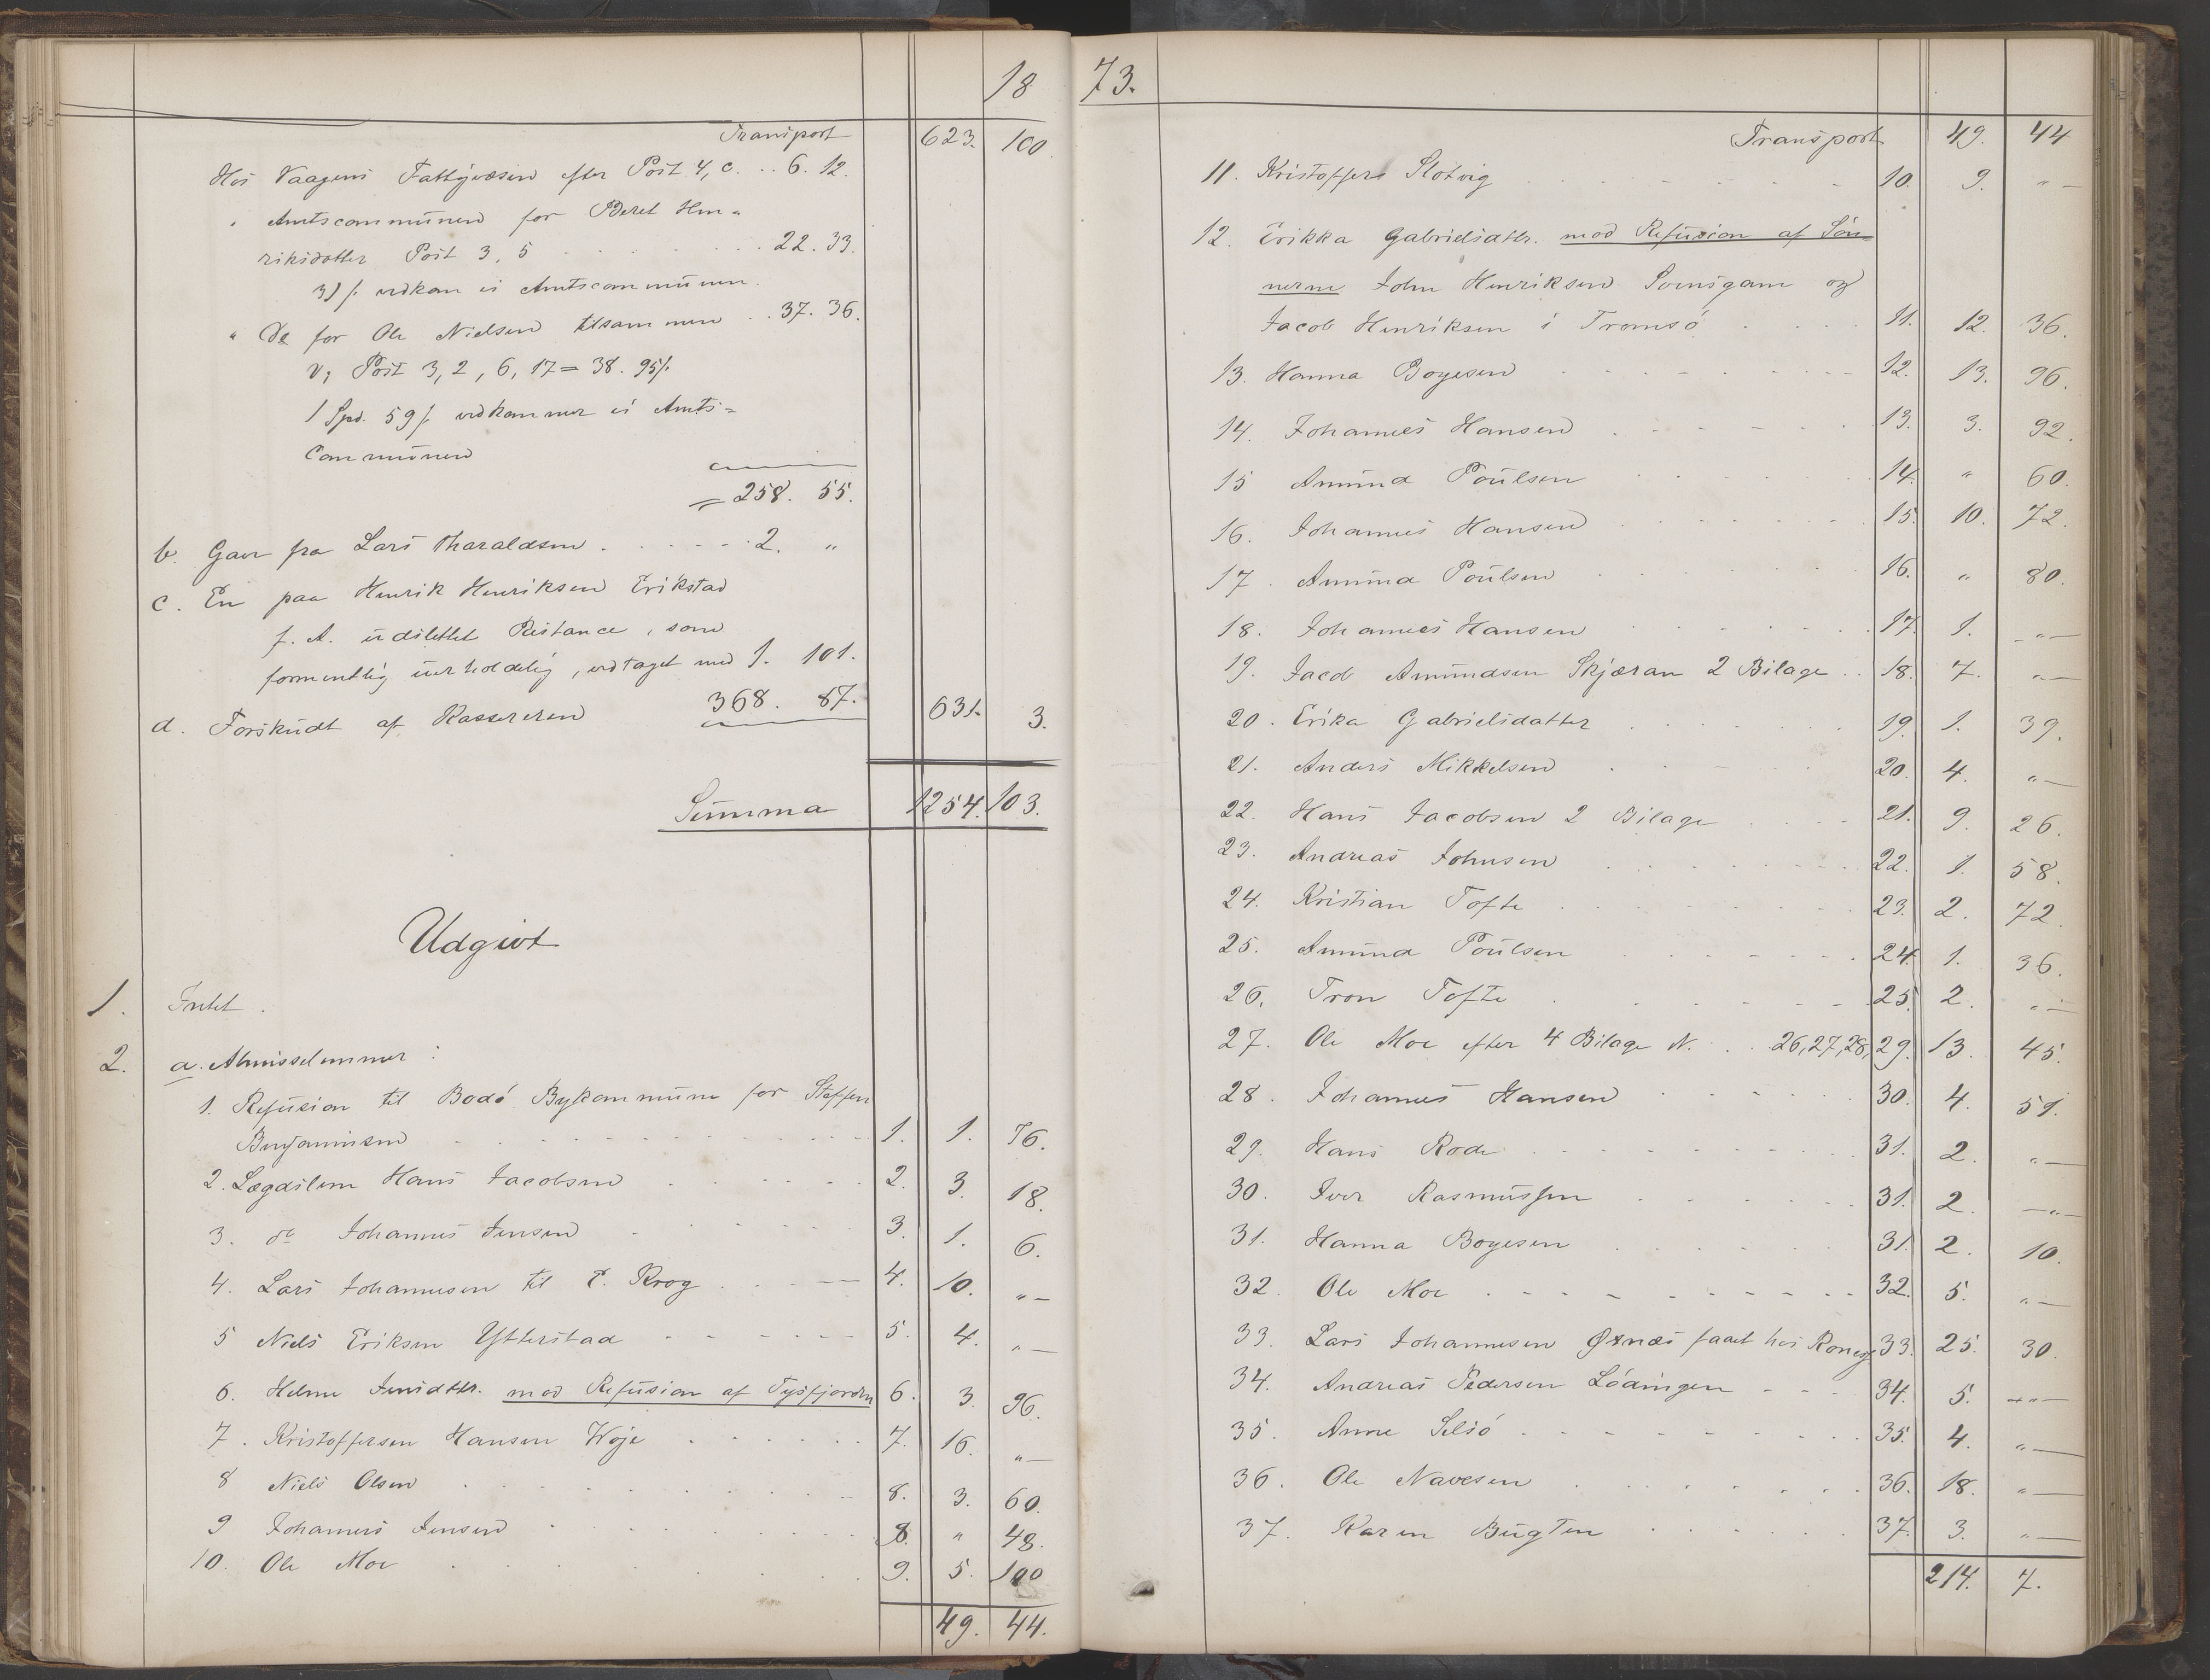 18
Transport 623. 100.
Hos Vaagens Fattigvæsen efter Post 4, c. .. 6. 12.
" Amtscommunen for Beret Hen-
riksdatter Post 3, 5 22. 33.
31/. vedkom ei Amtscommunen.
" Do for Ole Nielsen tilsammen .. 37. 36.
v; Post 3, 2, 6, 17 = 38. 95/.
1 Spd. 59/. vedkommer ei Amts=
Communen
= 258. 55.
b. Gave fra Lars Tharaldsen . 2. "
c. En paa Henrik Henriksen Erikstad
f. A. udslettet Restance, som
formentlig uerholdelig, vedtaget med 1. 101.
368. 87. 631. 3.
d. Forskudt af Kassereren
Summa 1254. 103.
Udgivt
1. Intet.
2. a. Almisselemmer :
1. Refusion til Bodö Bykommune for Steffen
Benjaminsen 1. 1. 76.
2. Lægdslem Hans Jacobsen 2. 3. 18.
3. do Johannes Jensen 3. 1. 6.
4. Lars Johannesen til E. Krog 4. 10. " —
5 Niels Eriksen Ytterstad 5. 4. " —
6. Helene Jensdtr. mod Refusion af Tysfjorden 6. 3. 96.
7. Kristoffersen Hansen Woje 7. 16. " —
8 Niels Olsen 8. 3. 60.
9 Johannes Jensen 8. " 48.
10. Ole Moe 9. 5. 100
49. 44.
73.
Transport 49. 44
11. Kristoffers Slotvig 10. 9. " —
12. Erikka Gabrielsdtr. mod Refusion af Søn-
nerne John Henriksen Svensgam og
Jacob Henriksen i Tromsö 11. 12. 36.
13. Hanna Boyesen 12. 13. 96.
14. Johannes Hansen 13. 3. 92.
15 Amund Poulsen 14. " 60.
16. Johannes Hansen 15. 10. 72.
17. Amund Poulsen 16. " 80.
18. Johannes Hansen 17. 1. " —
19. Jacob Amundsen Skjæran 2 Bilage .. 18. 7. " —
20. Erika Gabrielsdatter 19. 1. 39.
21. Anders Mikkelsen 20. 4. " —
22. Hans Jacobsen 2 Bilage 21. 9. 26.
23. Andreas Johnsen 22. 1. 58.
24. Kristian Tofte 23. 2. 72.
25. Amund Poulsen 24. 1. 36.
26. Tron Tofte 25. 2. " —
27. Ole Moe efter 4 Bilage N. . 26, 27, 28, 29. 13. 45.
28. Johannes Hansen 30. 4. 51.
29. Hans Rode 31. 2. " —
30. Iver Rasmussen 31. 2. " —
31. Hanna Boyesen 31. 2. 10.
32. Ole Moe 32. 5. " —
33. Lars Johannesen Øxnæs faaet hos 33. 25. 30.
34. Andreas Pedersen Lödingen 34. 5. " —
35. Anne Selsö 35. 4. " —
36. Ole Navesen 36. 18. " —
37. Karen Bugten 37. 3. " —
214. 7.